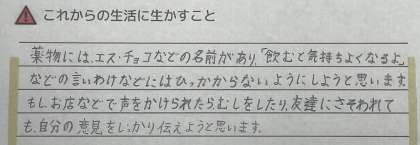 これからの生活に生かすこと
薬物には、エス・チョコなどの名前があり、「飲むと気持ちよくなるよ」
などの言いわけなどにはひっかからないようにしようと思います。
もし、お店などで声をかけられたらむしをしたり、友達にさそわれて
も、自分の意見をしっかり伝えようと思います。